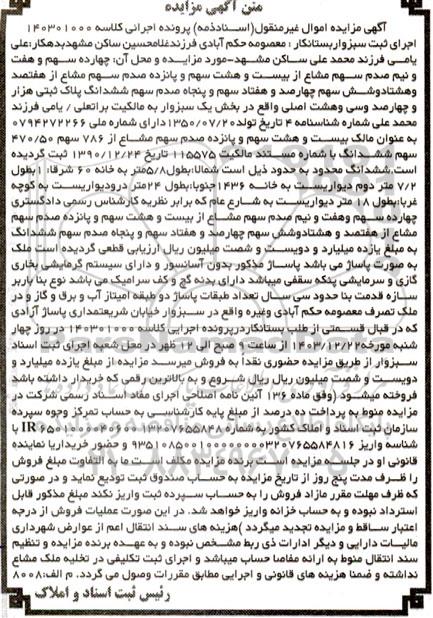 متن آگهی مزایده
آگهی مزایده اموال غیرمنقول(اسنادذمه) پرونده اجرائی کلاسه ۱۴۰۳۰۱۰۰۰
اجرای ثبت سبزواربستانکار: معصومه حکم آبادی فرزندغلامحسین ساکن مشهدبدهکار:علی
یامی فرزند محمد علی ساکن مشهد-مورد مزایده و محل آن: چهارده سهم و هفت
و نیم صدم سهم مشاع از بیست و هشت سهم و پانزده صدم سهم مشاع از هفتصد
وهشتادوشش سهم چهارصد و هفتاد سهم و پنجاه صدم سهم ششدانگ پلاک ثبتی هزار
و چهارصد وسی وهشت اصلی واقع در بخش یک سبزوار به مالکیت براتعلی / یامی فرزند
محمد علی شماره شناسنامه ۴ تاریخ تولد۱۳۵۰/۰۷/۲۰ دارای شماره ملی ۰۷۹۴۲۷۲۲۶۶
به عنوان مالک بیست و هشت سهم و پانزده صدم سهم مشاع از ۷۸۶ سهم ۴۷۰/۵۰
سهم ششدانگ با شماره مستند مالکیت ۱۱۵۵۷۵ تاریخ ۱۳۹۰/۱۲/۲۴ ثبت گردیده
است.ششدانگ محدود به حدود ذیل است شمالا:بطول۵/۸متر به خانه ۶۰ شرقا: بطول
۷/۲ متر دوم دیواریست به خانه ۱۴۳۶جنوبا: بطول ۲۴متر درودیواریست به کوچه
غربا:بطول ۱۸ متر دیواریست به شارع عام که برابر نظریه کارشناس رسمی دادگستری
چهارده سهم وهفت و نیم صدم سهم مشاع از بیست و هشت سهم و پانزده صدم سهم
مشاع از هفتصد و هشتادوشش سهم چهارصد و هفتاد سهم و پنجاه صدم سهم ششدانگ
به مبلغ یازده میلیارد و دویست و شصت میلیون ریال ارزیابی قطعی گردیده است ملک
به صورت پاساژ می باشد پاساژ مذکور بدون آسانسور و دارای سیستم گرمایشی بخاری
گازی و سرمایشی پنکه سقفی میباشد دارای بدنه گچ و کف سرامیک می باشد نوع بنا باربر
سازه قدمت بنا حدود سی سال تعداد طبقات پاساژ دو طبقه امتیاز آب و برق و گاز و در
ملک تصرف معصومه حکم آبادی وغیره واقع در سبزوار خیابان شریعتمداری پاساژ آزادی
که در قبال قسمتی از طلب بستانکاردرپرونده اجرایی کلاسه ۱۴۰۳۰۱۰۰۰ در روز چهار
شنبه مورخه۱۴۰۳/۱۲/۲۲ از ساعت ۹ صبح الی ۱۲ ظهر در محل شعبه اجرای ثبت اسناد
سبزوار از طریق مزایده حضوری نقدا به فروش میرسد مزایده از مبلغ یازده میلیارد و
دویست و شصت میلیون ریال ریال شروع و به بالاترین رقمی که خریدار داشته باشد
فروخته میشود (وفق ماده ۱۳۶ آئین نامه اصلاحی اجرای مفاد اسناد رسمی شرکت در
مزایده منوط به پرداخت ۱۰ درصد از مبلغ پایه کارشناسی به حساب تمرکز وجوه سپرده
سازمان ثبت اسناد و املاک کشور به شماره IR با
شناسه واریز و حضور خریداریا نماینده
قانونی او در جلسه مزایده است برنده مزایده مکلف است ما به التفاوت مبلغ فروش
را ظرف مدت پنج روز از تاریخ مزایده به حساب صندوق ثبت تودیع نماید و در صورتی
که ظرف مهلت مقرر مازاد فروش را به حساب سپرده ثبت واریز نکند مبلغ مذکور قابل
استرداد نبوده و به حساب خزانه واریز خواهد شد. در این صورت عملیات فروش از درجه
اعتبار ساقط و مزایده تجدید میگردد )هزینه های سند انتقال اعم از عوارض شهرداری
مالیات دارایی و دیگر ادارات ذی ربط مشخص نبوده و به عهده برنده مزایده و تنظیم
سند انتقال منوط به ارائه مفاصا حساب میباشد و اجرای ثبت تکلیفی در تخلیه ملک مشاع
نداشته و ضمنا هزینه های قانونی و اجرایی مطابق مقررات وصول می گردد. م الف:۸۰۰۸
رئیس ثبت اسناد و املاک